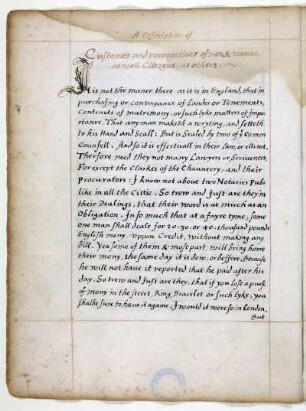 A Description of
Customes and prerogatives of men & women,
as well Citizens, as others.
It is not the maner there as it is in England, that in
purchasing or conveyance of Landes or Tenements,
Contracts of matrimony, or such lyke matters of impor-
tance. That any man maketh a wryting, and setteth
to his Hand and Seall: But is Sealed by two of ye Comon
Counsell. And so it is effectuall in their Law, or ells not.
Therfore need they not many Lawyers or Scriveners,
For except the Clarkes of the Chauncery, and their
Procurators: I know not about two Notaries Pub-
like in all the Citie. So trew and Just are they in
their Dealings, that their word is as much as an
Obligation. In so much that at a fayre tyme, some
one man shall deale for 20. 30. or 40. thousand pounds
English mony. Uppon Credit, without making any
bill. Yea some of them & most part, will bring home
their mony, the same day it is dew, or beffore, because
he will not have it reported that he paid after his
day. So trew and Just are they, that if you lose a purse
of mony in the street, Ring, Bracelet or such lyke, you
shalbe sure to have it agane. I would it were so in London.
But